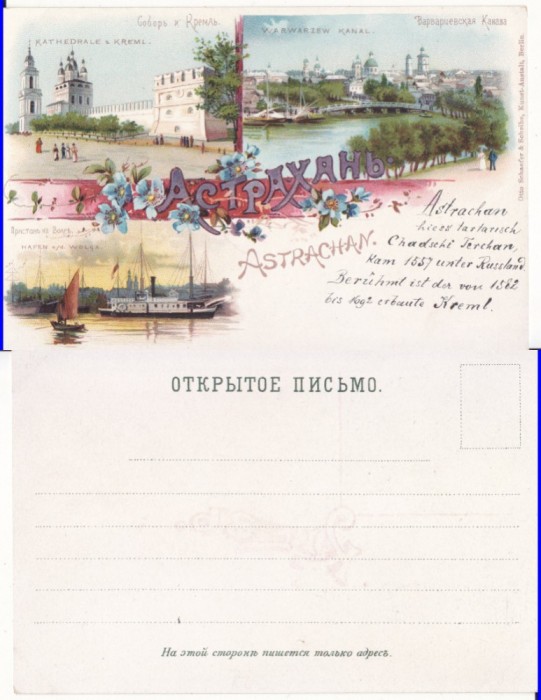 Соборъ и Кремль.
KATHEDRALE & KREML.
Варварiевская Канава
WARWARIEW KANAL.
Otto Schaefer & Scheibe, Kunst-Anstalt, Berlin.
АСТРАХАНЬ.
ASTRACHAN.
Пристань на Волгѣ.
HAFEN a/d WOLGA.
Astrachan
hiess tartarisch
Chadschi Terchan,
kam 1557 unter Russland
Berühmt ist der von 1582
bis 1692 erbaute Kreml.
ОТКРЫТОЕ ПИСЬМО.
На этой сторонѣ пишется только адресъ.